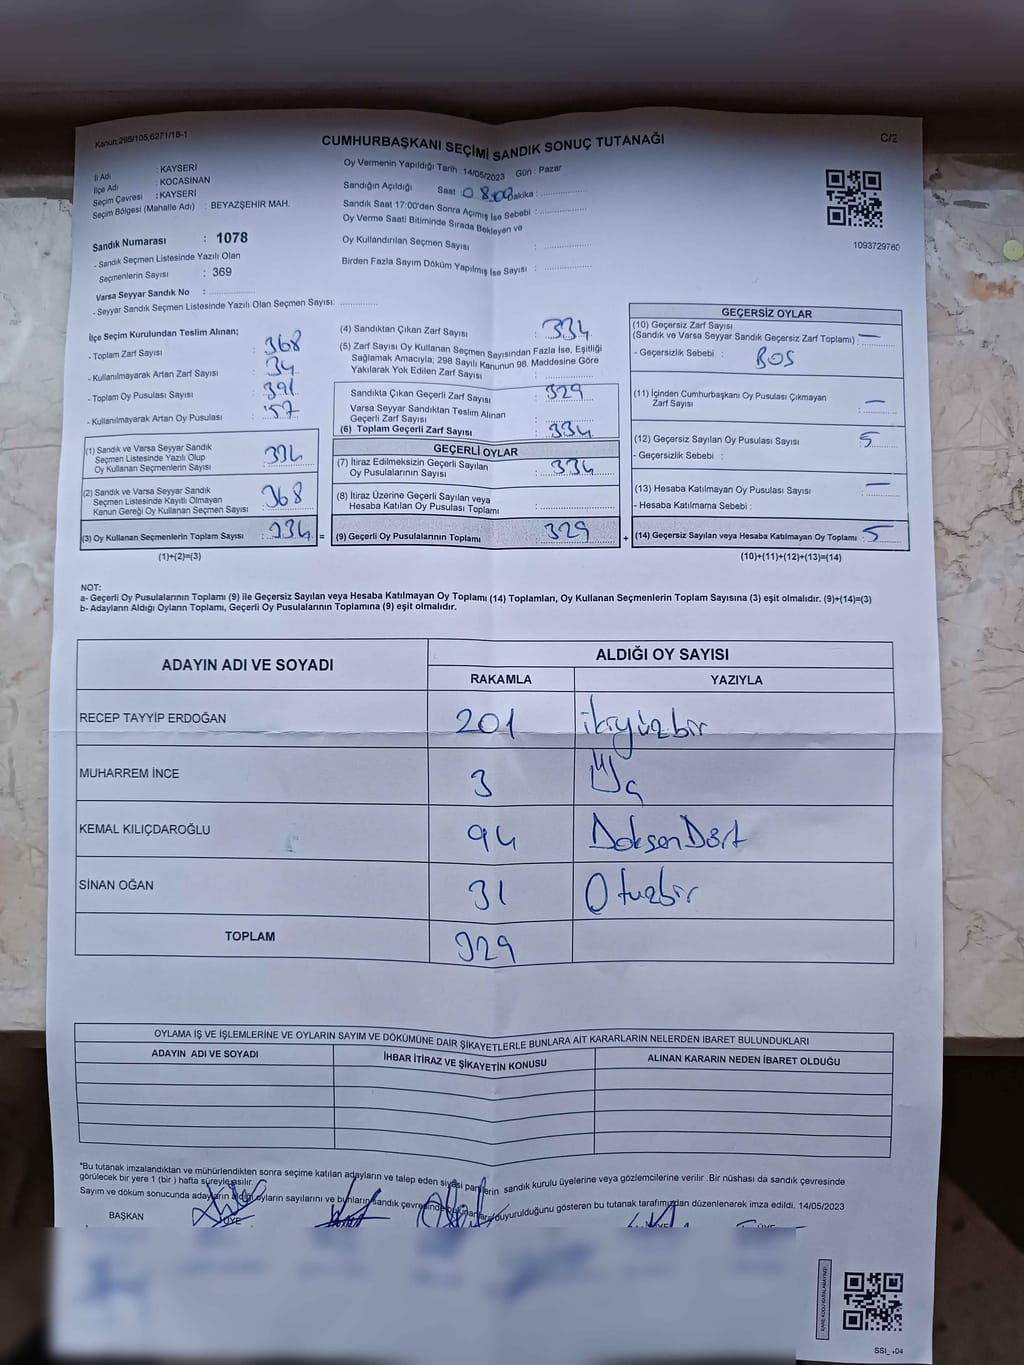 Kanun:298/105,6271/18-1
CUMHURBAŞKANI SEÇİMİ SANDIK SONUÇ TUTANAĞI
C/2
İl Adı : KAYSERİ
İlçe Adı : KOCASİNAN
Seçim Çevresi : KAYSERİ
Seçim Bölgesi (Mahalle Adı) : BEYAZŞEHİR MAH.
Sandık Numarası : 1078
- Sandık Seçmen Listesinde Yazılı Olan
Seçmenlerin Sayısı : 369
Varsa Seyyar Sandık No :
- Seyyar Sandık Seçmen Listesinde Yazılı Olan Seçmen Sayısı:
Oy Vermenin Yapıldığı Tarih : 14/05/2023 Gün : Pazar
Sandığın Açıldığı Saat 08.00 Dakika :
Sandık Saat 17:00'den Sonra Açımış İse Sebebi :
Oy Verme Saati Bitiminde Sırada Bekleyen ve
Oy Kullandırılan Seçmen Sayısı :
Birden Fazla Sayım Döküm Yapılmış İse Sayısı :
1093729760
İlçe Seçim Kurulundan Teslim Alınan;
- Toplam Zarf Sayısı : 368
- Kullanılmayarak Artan Zarf Sayısı : 34
- Toplam Oy Pusulası Sayısı : 391
- Kullanılmayarak Artan Oy Pusulası : 57
(1) Sandık ve Varsa Seyyar Sandık
Seçmen Listesinde Yazılı Olup
Oy Kullanan Seçmenlerin Sayısı : 334
(2) Sandık ve Varsa Seyyar Sandık
Seçmen Listesinde Kayıtlı Olmayan
Kanun Gereği Oy Kullanan Seçmen Sayısı : 368
(3) Oy Kullanan Seçmenlerin Toplam Sayısı : 334 =
(1)+(2)=(3)
(4) Sandıktan Çıkan Zarf Sayısı : 334
(5) Zarf Sayısı Oy Kullanan Seçmen Sayısından Fazla İse, Eşitliği
Sağlamak Amacıyla; 298 Sayılı Kanunun 98. Maddesine Göre
Yakılarak Yok Edilen Zarf Sayısı :
Sandıkta Çıkan Geçerli Zarf Sayısı : 329
Varsa Seyyar Sandıktan Teslim Alınan
Geçerli Zarf Sayısı :
(6) Toplam Geçerli Zarf Sayısı : 334
GEÇERLİ OYLAR
(7) İtiraz Edilmeksizin Geçerli Sayılan
Oy Pusulalarının Sayısı : 334
(8) İtiraz Üzerine Geçerli Sayılan veya
Hesaba Katılan Oy Pusulası Toplamı :
(9) Geçerli Oy Pusulalarının Toplamı : 329 +
GEÇERSİZ OYLAR
(10) Geçersiz Zarf Sayısı
(Sandık ve Varsa Seyyar Sandık Geçersiz Zarf Toplamı) : —
- Geçersizlik Sebebi : BOS
(11) İçinden Cumhurbaşkanı Oy Pusulası Çıkmayan
Zarf Sayısı : —
(12) Geçersiz Sayılan Oy Pusulası Sayısı : 5
- Geçersizlik Sebebi :
(13) Hesaba Katılmayan Oy Pusulası Sayısı : —
- Hesaba Katılmama Sebebi :
(14) Geçersiz Sayılan veya Hesaba Katılmayan Oy Toplamı : 5
(10)+(11)+(12)+(13)=(14)
NOT:
a- Geçerli Oy Pusulalarının Toplamı (9) ile Geçersiz Sayılan veya Hesaba Katılmayan Oy Toplamı (14) Toplamları, Oy Kullanan Seçmenlerin Toplam Sayısına (3) eşit olmalıdır. (9)+(14)=(3)
b- Adayların Aldığı Oyların Toplamı, Geçerli Oy Pusulalarının Toplamına (9) eşit olmalıdır.
ADAYIN ADI VE SOYADI
ALDIĞI OY SAYISI
RAKAMLA YAZIYLA
RECEP TAYYİP ERDOĞAN 201 ikiyüzbir
MUHARREM İNCE 3 Üç
KEMAL KILIÇDAROĞLU 94 DoksenDört
SİNAN OĞAN 31 Otuzbir
TOPLAM 329
OYLAMA İŞ VE İŞLEMLERİNE VE OYLARIN SAYIM VE DÖKÜMÜNE DAİR ŞİKAYETLERLE BUNLARA AİT KARARLARIN NELERDEN İBARET BULUNDUKLARI
ADAYIN ADI VE SOYADI İHBAR İTİRAZ VE ŞİKAYETİN KONUSU ALINAN KARARIN NEDEN İBARET OLDUĞU
*Bu tutanak imzalandıktan ve mühürlendikten sonra seçime katılan adayların ve talep eden siyasi partilerin sandık kurulu üyelerine veya gözlemcilerine verilir .Bir nüshası da sandık çevresinde
görülecek bir yere 1 (bir ) hafta süreyle asılır.
Sayım ve döküm sonucunda adayların aldığı oyların sayılarını ve bunların sandık çevresinde duyurulduğunu gösteren bu tutanak tarafımızdan düzenlenerek imza edildi. 14/05/2023
BAŞKAN ÜYE
SSI_